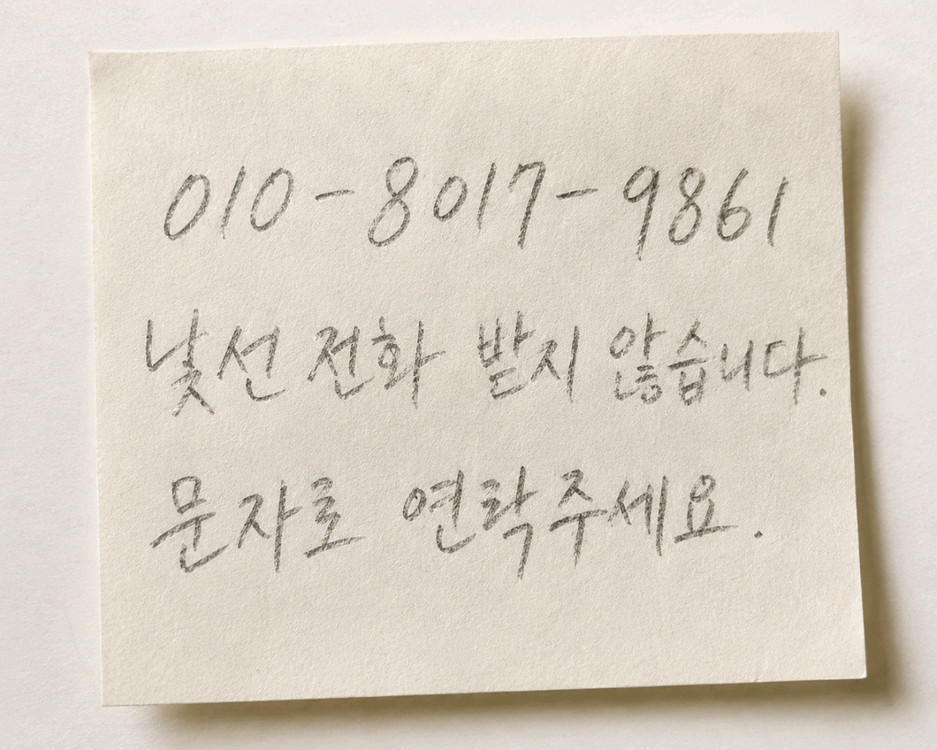 010-8017-9861
낯선 전화 받지 않습니다.
문자로 연락주세요.